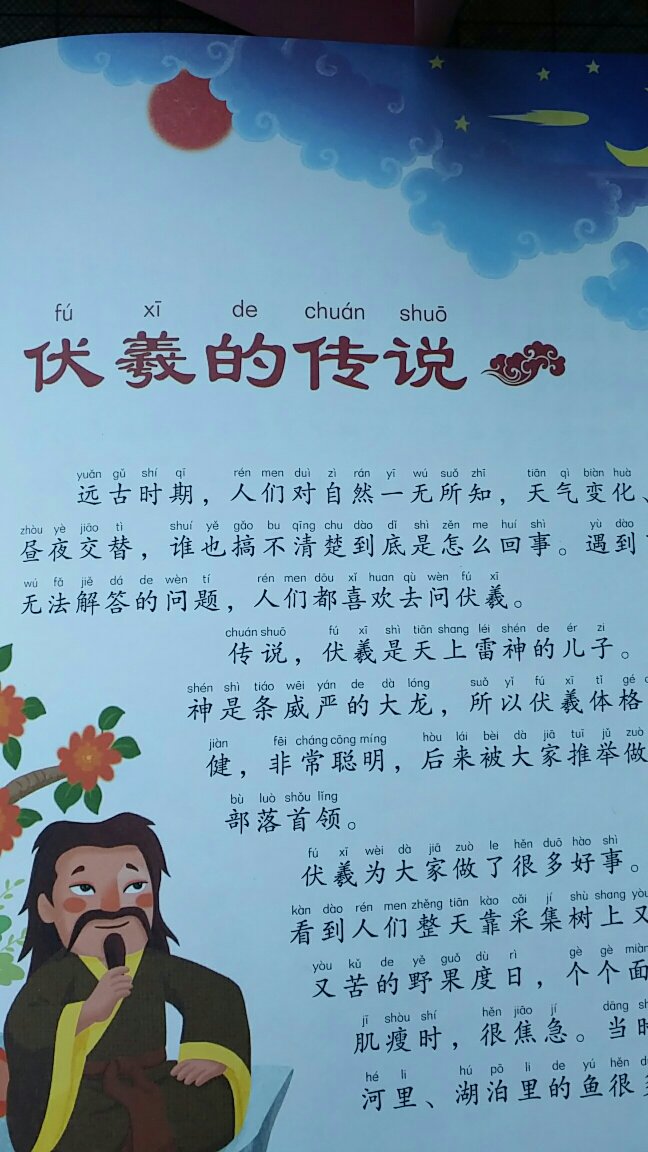 fú xī de chuán shuō
伏羲的传说
yuǎn gǔ shí qī rén men duì zì rán yī wú suǒ zhī tiān qì biàn huà
远古时期，人们对自然一无所知，天气变化、
zhòu yè jiāo tì shuí yě gǎo bu qīng chu dào dǐ shì zěn me huí shì yù dào
昼夜交替，谁也搞不清楚到底是怎么回事。遇到
wú fǎ jiě dá de wèn tí rén men dōu xǐ huan qù wèn fú xī
无法解答的问题，人们都喜欢去问伏羲。
chuán shuō fú xī shì tiān shang léi shén de ér zi
传说，伏羲是天上雷神的儿子。
shén shì tiáo wēi yán de dà lóng suǒ yǐ fú xī tǐ gé
神是条威严的大龙，所以伏羲体格
jiàn fēi cháng cōng míng hòu lái bèi dà jiā tuī jǔ zuò
健，非常聪明，后来被大家推举做
bù luò shǒu lǐng
部落首领。
fú xī wèi dà jiā zuò le hěn duō hǎo shì
伏羲为大家做了很多好事。
kàn dào rén men zhěng tiān kào cǎi jí shù shang yòu
看到人们整天靠采集树上又
yòu kǔ de yě guǒ dù rì gè gè miàn
又苦的野果度日，个个面
jī shòu shí hěn jiāo jí dāng
肌瘦时，很焦急。当时
hé li hú pō li de yú hěn
河里、湖泊里的鱼很